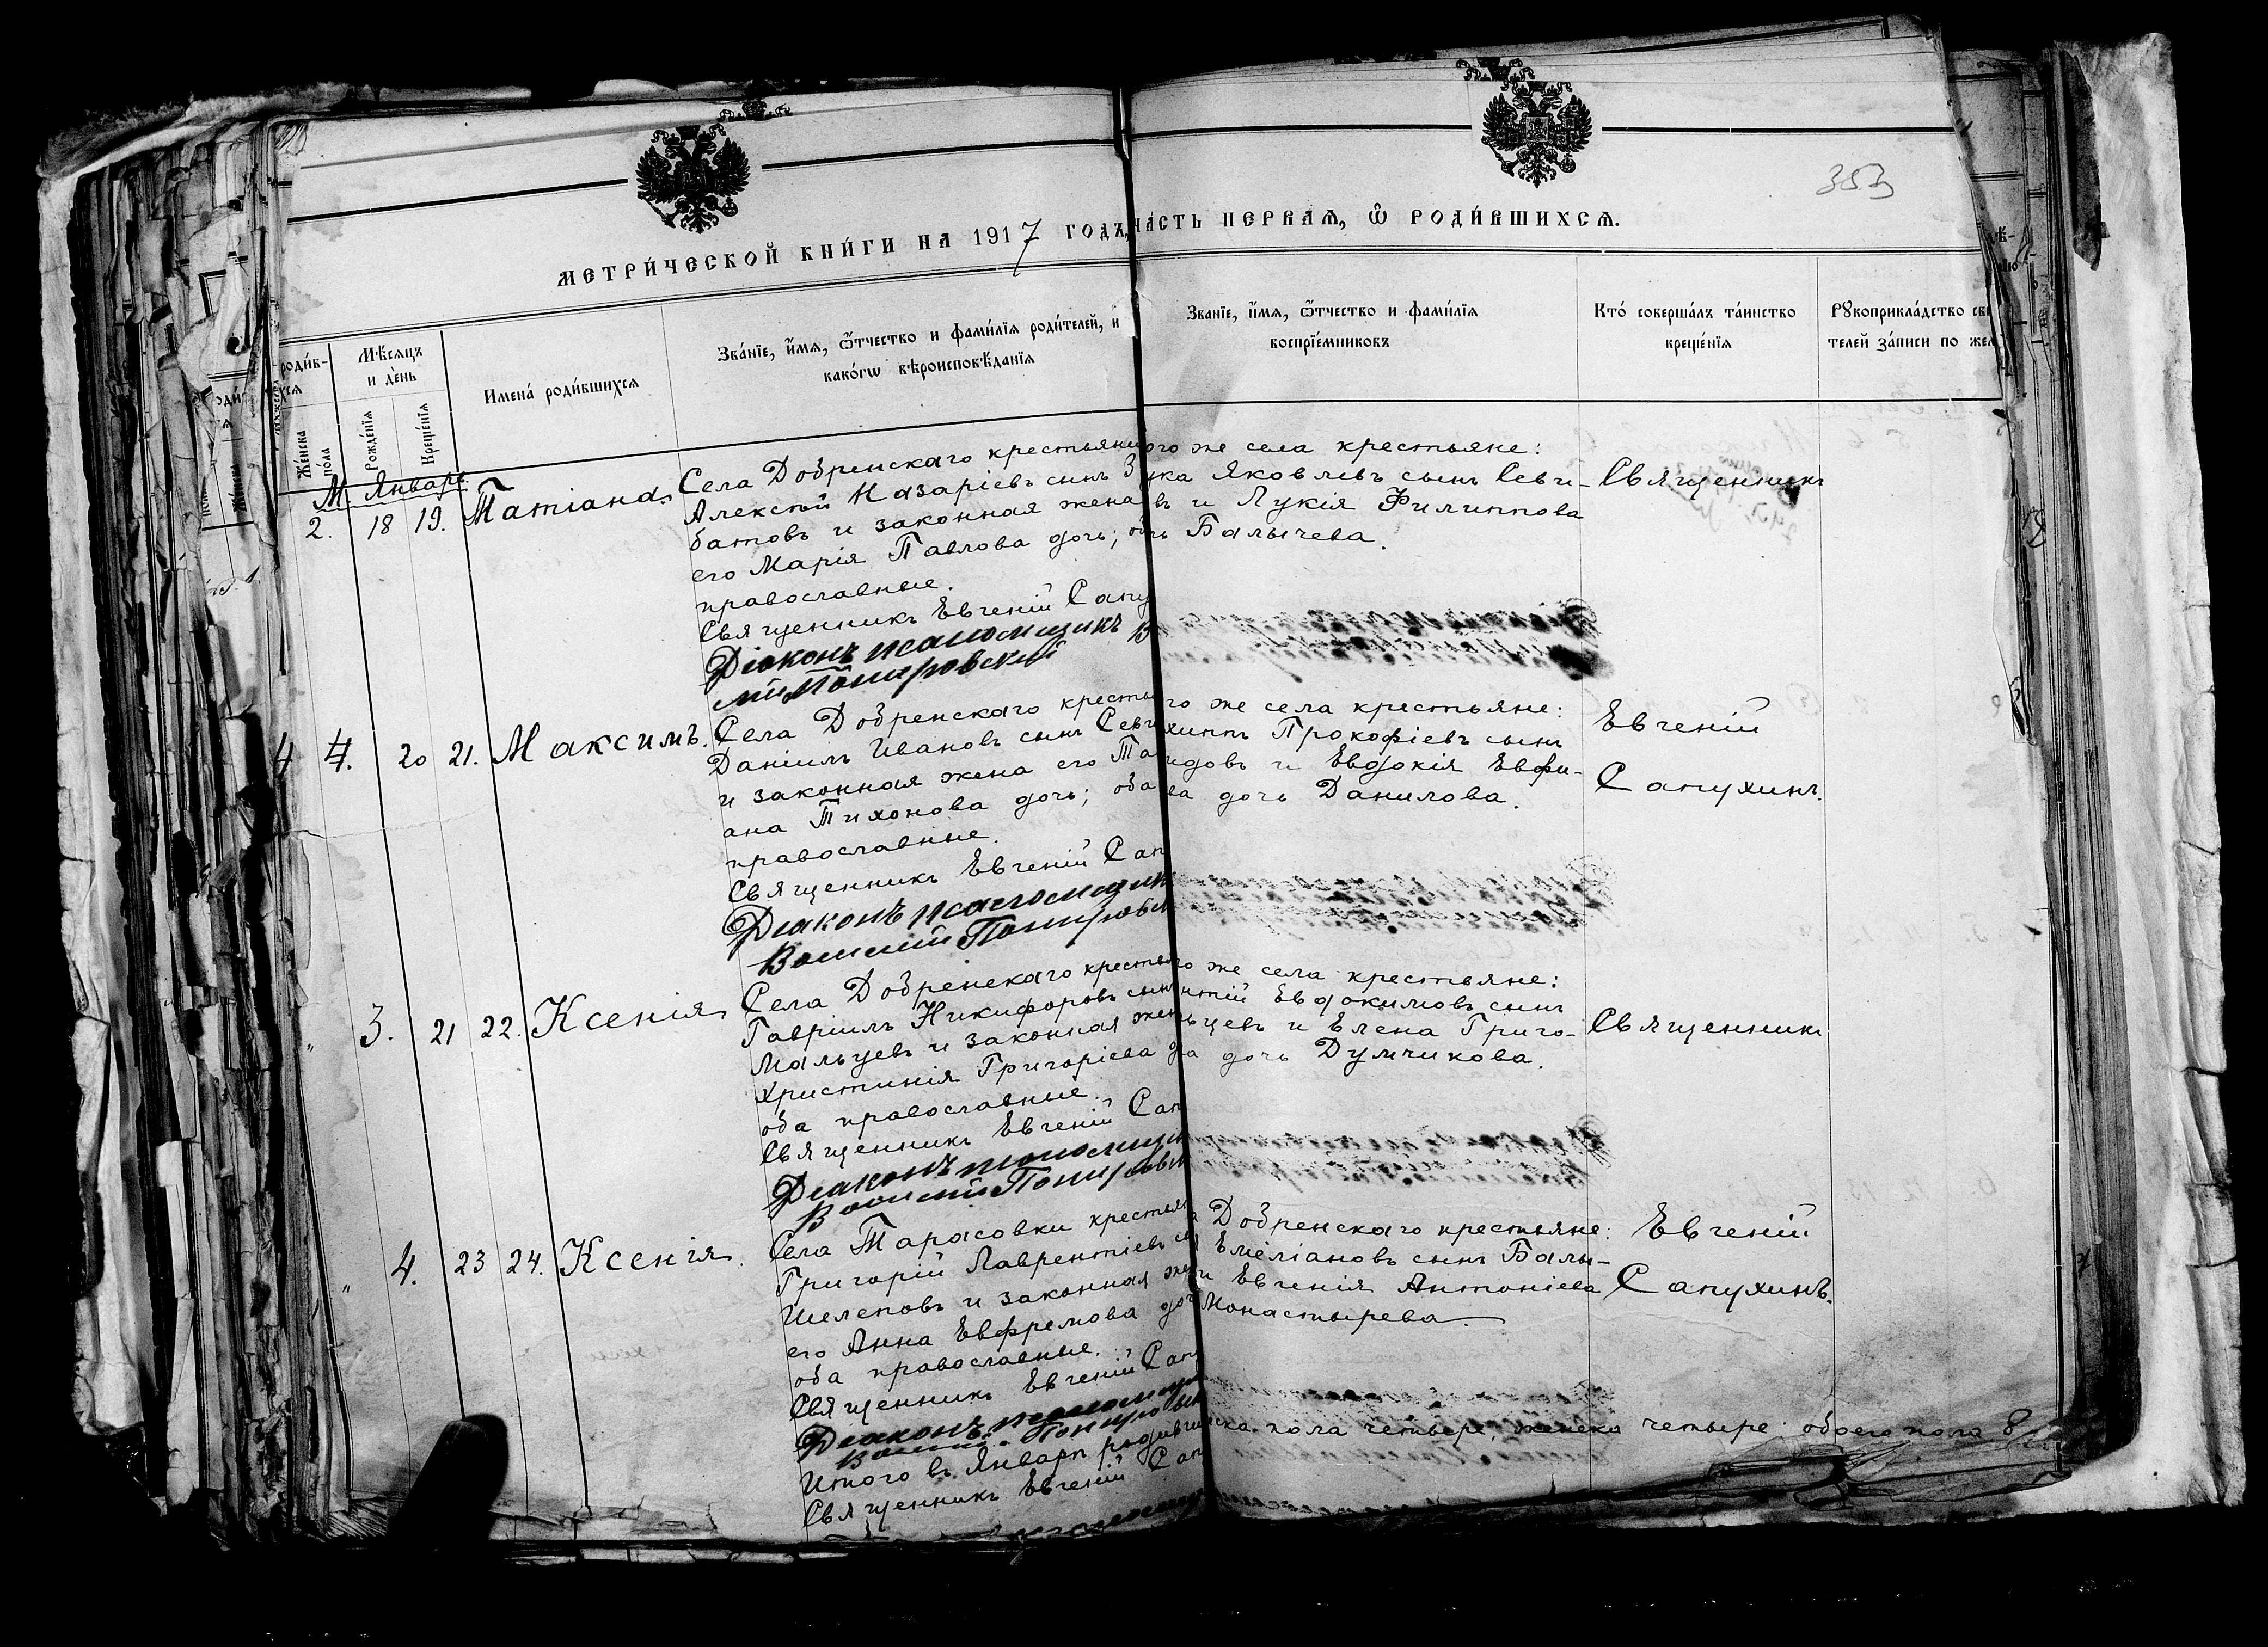 353
МЕТРИ́ЧЕСКОЙ КНИ́ГИ НА 1917 ГОДЪ, ЧА́СТЬ ПЕРВАѦ, Ѽ РОДИ́ВШИХСѦ.
роди́в-
хсѧ
Же́нска
по́ла
Мѣ́сѧцъ
и де́нь
Рожде́нїѧ
Креще́нїѧ
Имена́ роди́вшихсѧ
Зва́нїе, и҆́мѧ, ѻ҆́тчество и фами́лїѧ роди́телей, и
како́гѡ вѣроисповѣ́данїѧ
Зва́нїе, и҆́мѧ, ѻ҆́тчество и фами́лїѧ
воспрїе́мниковъ
Кто́ соверша́лъ та́инство
креще́нїѧ
Рꙋкоприкла́дство сви
телей за́писи по жел
М. Январь.
2. 18 19. Татіана
Села Добренскаго крестьяни
Алексѣй Назаріевъ сынъ
батовъ и законная жена
его Марія Павлова дочь;
православные.
Священникъ Евгеній Сапу
Діаконъ псаломщикъ В
ого же села крестьяне:
ука Яковлевъ сынъ Севи-
въ и Лукія Филиппова
Балычева.
Священникъ
4 4. 20 21. Максимъ.
Села Добренскаго кресть
Даніилъ Ивановъ сынъ Севи
и законная жена его Та
ана Тихонова дочь; оба
православные.
Священникъ Евгеній Сап
Діаконъ псаломщик
го же села крестьяне:
Прокофіевъ сынъ
идовъ и Евдокія Евфи-
ва дочь Данилова.
Евгеній
Сапухинъ.
" 3. 21 22. Ксенія
Села Добренскаго крестья
Гавріилъ Никифоровъ сынъ
Мальцевъ и законная жен
Христинія Григоріева
оба православные.
Священникъ Евгеній Сап
Діаконъ псаломщи
го же села крестьяне:
нтій Евдокимовъ сынъ
ьцевъ и Елена Григо-
ва дочь Думчикова.
Священникъ
" 4. 23 24. Ксенія.
Села Тарасовки крестья
Григорій Лаврентіевъ
Шелеповъ и законная же
его Анна Евфремова доч
оба православные.
Священникъ Евгеній Сап
Діаконъ псаломщи
Добренскаго крестьяне:
Емеліановъ сынъ Балы-
и Евгенія Антоніева
Монастырева
Евгеній
Сапухинъ.
Итого въ Январѣ родивши
ска пола четыре, женска четыре обоего пола 8
Священникъ Евгеній Сап